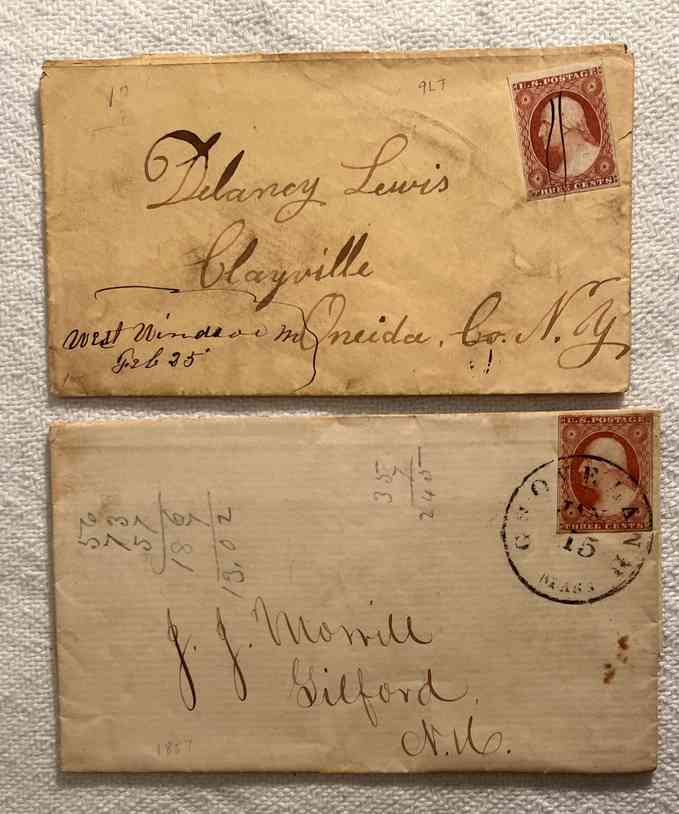 17
9LJ
U.S. POSTAGE
THREE CENTS
Delancy Lewis
Clayville
Oneida, Co. N. Y
West Windsor
Feb 25
U.S. POSTAGE
THREE CENTS
JAN
15
MASS
35
7
245
56
73
57
186
13.02
J. J. Morrill
Gilford,
N.H.
1857